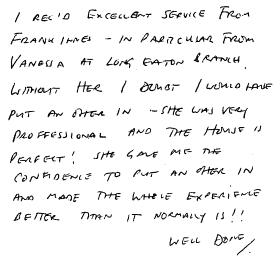 I REC'D EXCELLENT SERVICE FROM
FRANK INNES - IN PARTICULAR FROM
VANESSA AT LONG EATON BRANCH.
WITHOUT HER I DOUBT I WOULD HAVE
PUT AN OFFER IN - SHE WAS VERY
PROFFESSIONAL AND THE HOUSE IS
PERFECT! SHE GAVE ME THE
CONFIDENCE TO PUT AN OFFER IN
AND MADE THE WHOLE EXPERIENCE
BETTER THAN IT NORMALLY IS!!
WELL DONE!